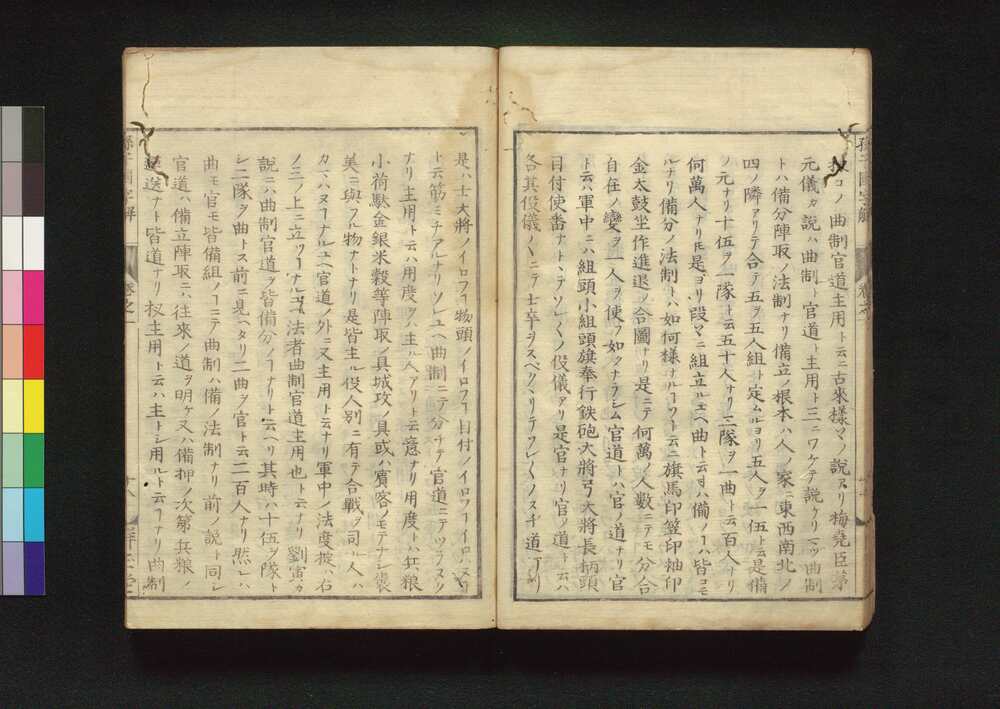 扨コノ曲制官道主用ト云ニ古來樣〻ノ說アリ梅堯臣茅
元儀カ說ハ曲制ト官道ト主用ト三ニワケテ說ケリマツ曲制
トハ備分陣取ノ法制ナリ備立ノ根本ハ人ノ家ニ東西南北ノ
四ノ隣アリテ合テ五ヲ五人組ト定ムルヨリ五人ヲ一伍ト云是備
ノ元ナリ十伍ヲ一隊ト云五十人ナリ二隊ヲ一曲ト云百人ナリ
何萬人ナリ𪜈是ヨリ段〻ニ組立ルユヘ曲ト云ヿハ備ノヿハ皆コモ
ルナリ備分ノ法制トハ如何樣ナルヿソト云ニ旗馬印笠印袖印
金太鼓坐作進退ノ合圖ナリ是ニテ何萬ノ人數ニテモ分合
自在ノ變ヲ一人ヲ使フ如クナラシム官道トハ官ノ道ナリ官
ト云ハ軍中ニハ組頭小組頭旗奉行鉄砲大將弓大將長柄頭
目付使番ナト、テソレ〱ノ役儀アリ是官ナリ官ノ道ト云ハ
各其役儀〱ニテ士卒ヲスヘクヽリテソレ〱ノスチ道アリ
是ハ士大將ノイロフヿ物頭ノイロフヿ目付ノイロフヿイロハヌヿ
ト云筋ミチアルナリソレユヘ曲制ニテ分チテ官道ニテツラヌク
ナリ主用ト云ハ用度ヲハ主ル人アリト云意ナリ用度トハ兵粮
小荷駄金銀米穀等陣取ノ具城攻ノ具或ハ賓客ノモテナシ褒
美ニ與フル物ナトナリ是皆主ル役人別ニ有テ合戰ヲ司ル人ハ
カマハヌヿナルユヘ官道ノ外ニ又主用ト云ナリ軍中ノ法度掟ハ右
ノ三ノ上ニ立ツヿナルユヘ法者曲制官道主用也ト云ナリ劉寅カ
說ニハ曲制官道ヲ皆備分ノヿナリト云ヘリ其時ハ十伍ヲ隊ト
シ二隊ヲ曲トス前ニ見ヘタリ二曲ヲ官ト云二百人ナリ然レハ
曲モ官モ皆備組ノヿニテ曲制ハ備ノ法制ナリ前ノ說ト同シ
官道ハ備立陣取ニハ往來ノ道ヲ明ケ又ハ備押ノ次第兵粮ノ
運送ナト皆道ナリ扨主用ト云ハ主トシ用ルト云ヿナリ曲制
孫子國字解
卷之一
十八